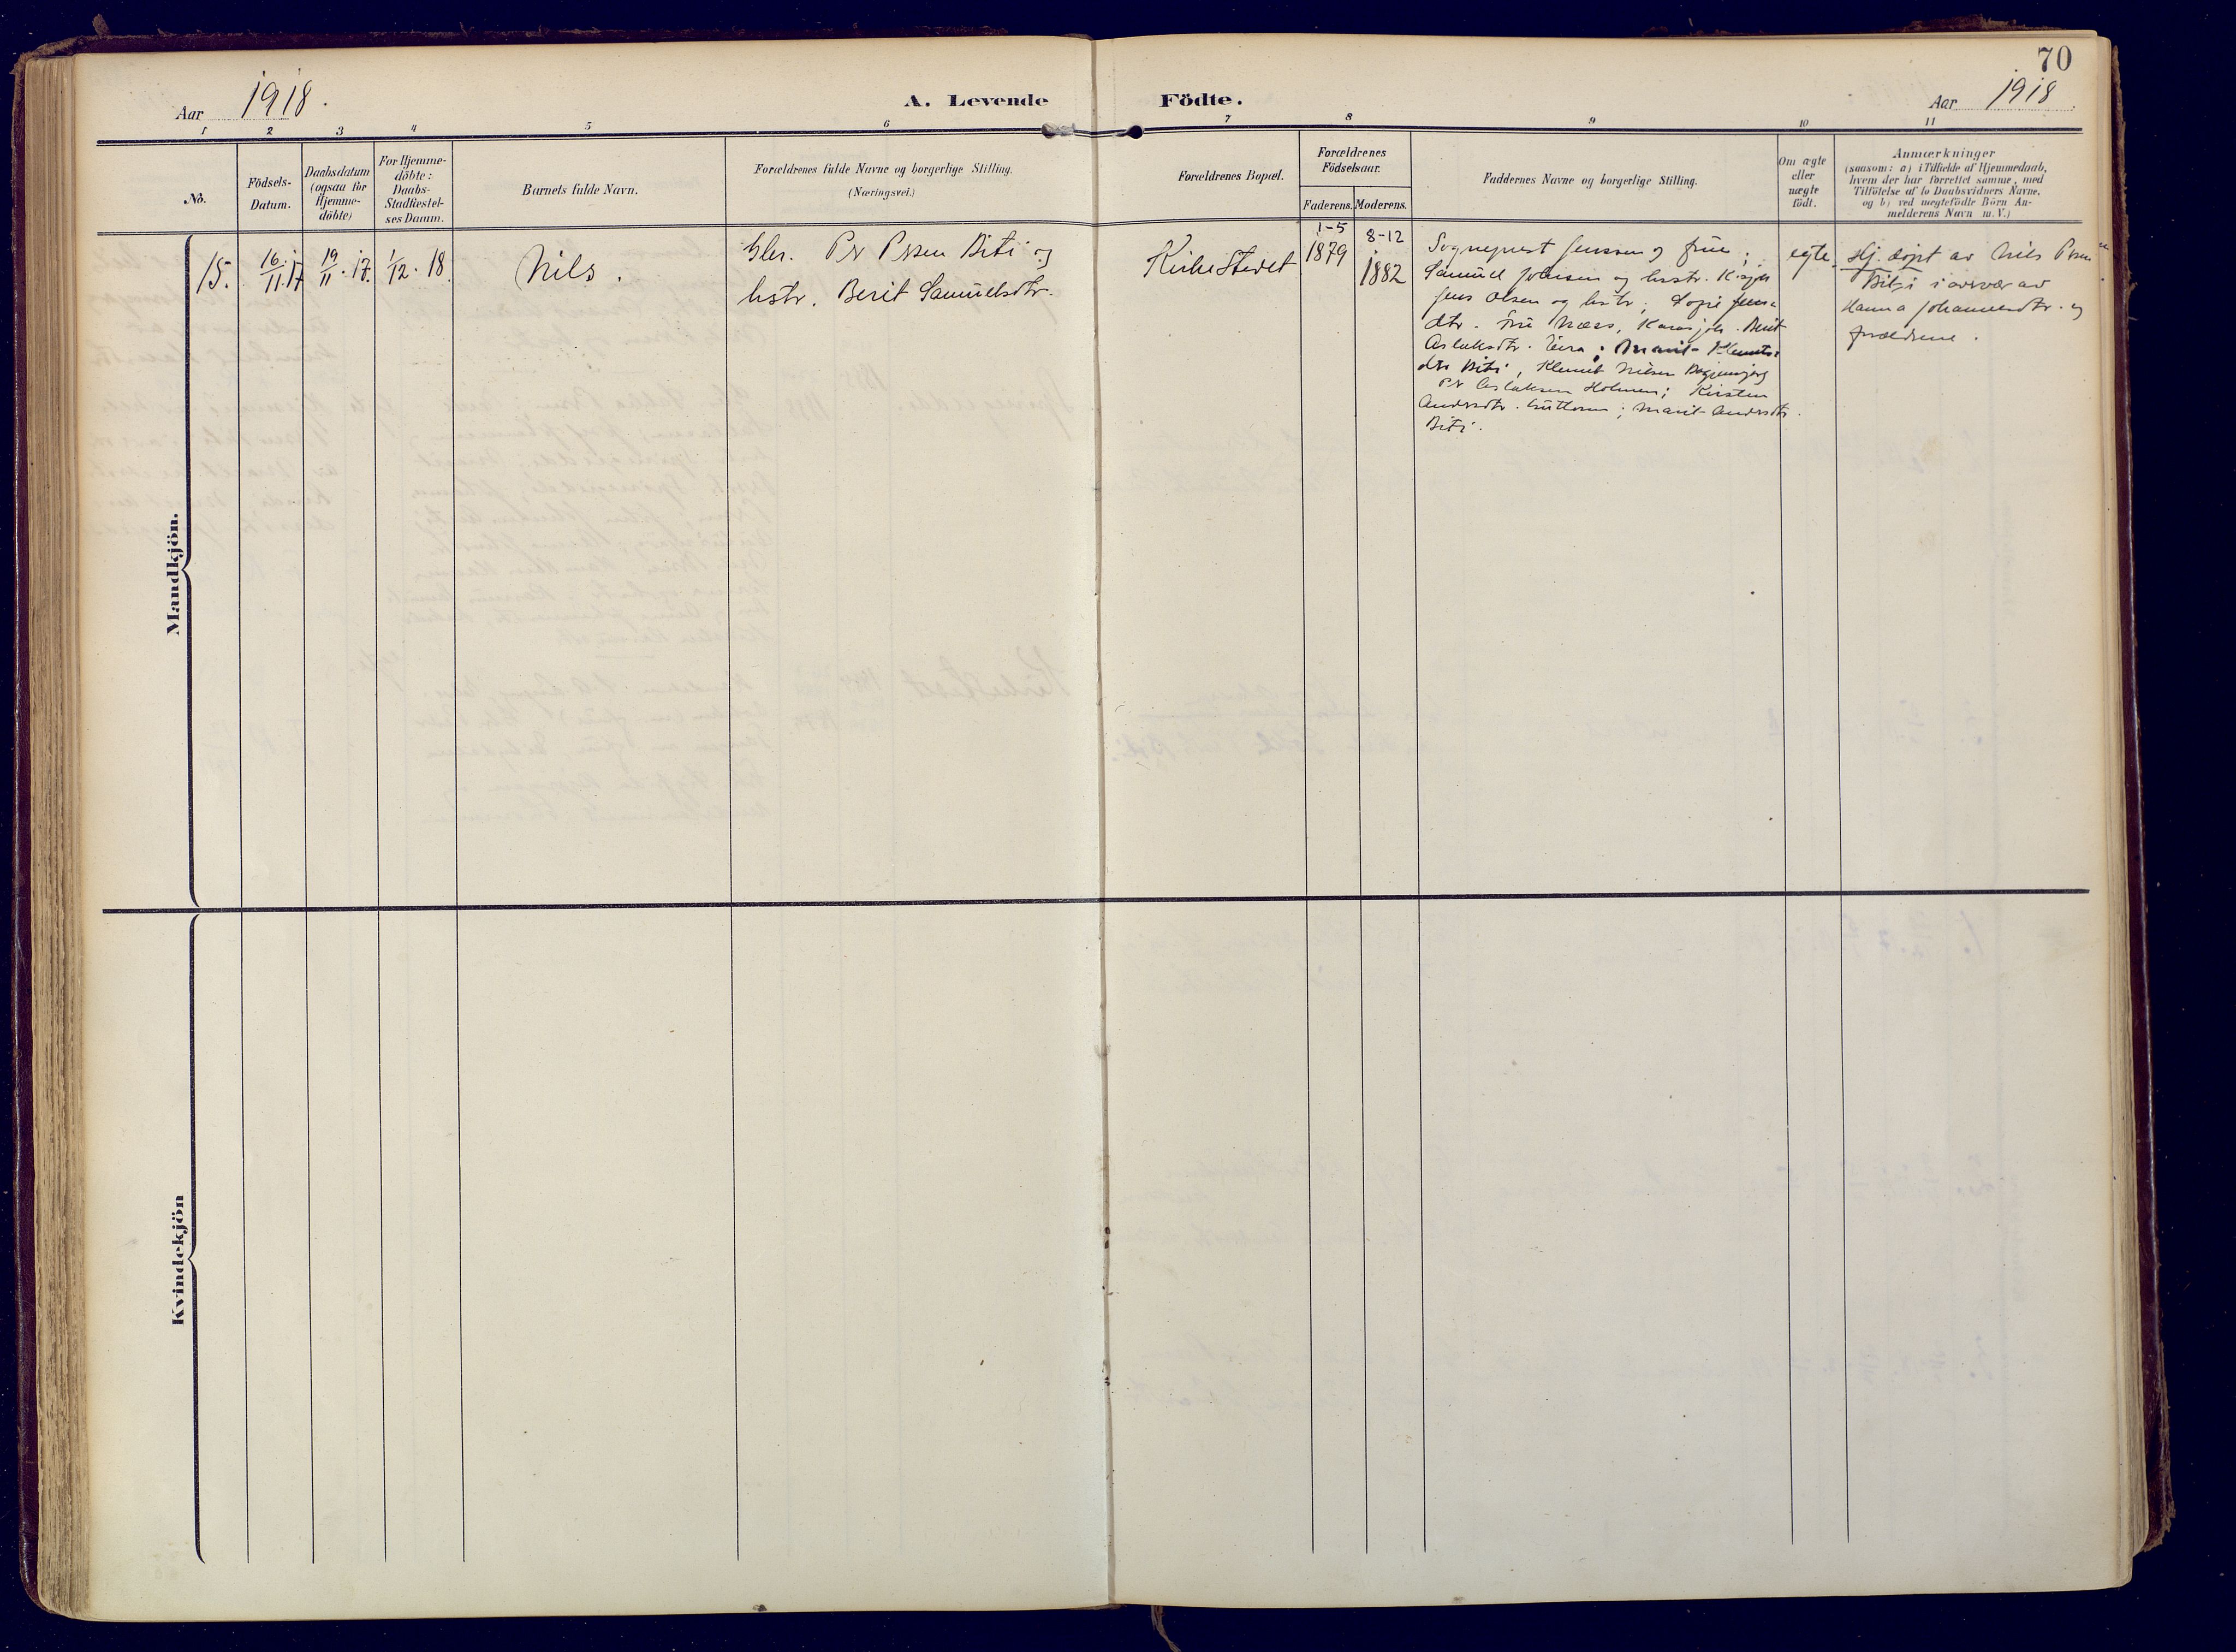 70
Aar 1918.
A. Levende Födte.
Aar 1918.
1 2 3 4 5 6 7 8 9 10 11
No.
Födsels-
Datum.
Daabsdatum
(ogsaa for
Hjemme-
döbte)
For Hjemme-
döbte:
Daabs-
Stadfæstel-
ses Datum.
Barnets fulde Navn.
Forældrenes fulde Navne og borgerlige Stilling.
(Næringsvei.)
Forældrenes Bopæl.
Forældrenes
Födselsaar.
Faderens. Moderens.
Faddernes Navne og borgerlige Stilling.
Om ægte
eller
uægte
födt.
Anmærkninger
(saasom: a) i Tilfælde af Hjemmedaab,
hvem der har forrettet samme, med
Tilföielse af to Daabsvidners Navne,
og b) ved uægtefödte Börn An-
melderens Navn m. V.)
Mandkjön.
15.
16/11.17
19/11.17.
1/12.18.
Nils.
Per Persen Biti og
hstr. Berit Samuelsdtr.
Kirkestedet
1-5
1879
8-12
1882
Sogneprest Jenssen og frue;
Samuel Johnsen og hustr.
Jens Olsen og hstr.; Jens-
dtr. Næss, Karasjok. Berit
Aslaksdtr. ; Marit Klemets-
dtr Biti, Klemet Nilsen
Per Aslaksen Holmen; Kirsten
Andersdtr. Guttorm; Marit Andersdtr.
Biti.
egte.
Hj. døpt av Nils Persen
Biti i overvær av
Hanna Johannesdtr. og
forældrene.
Kvindekjön